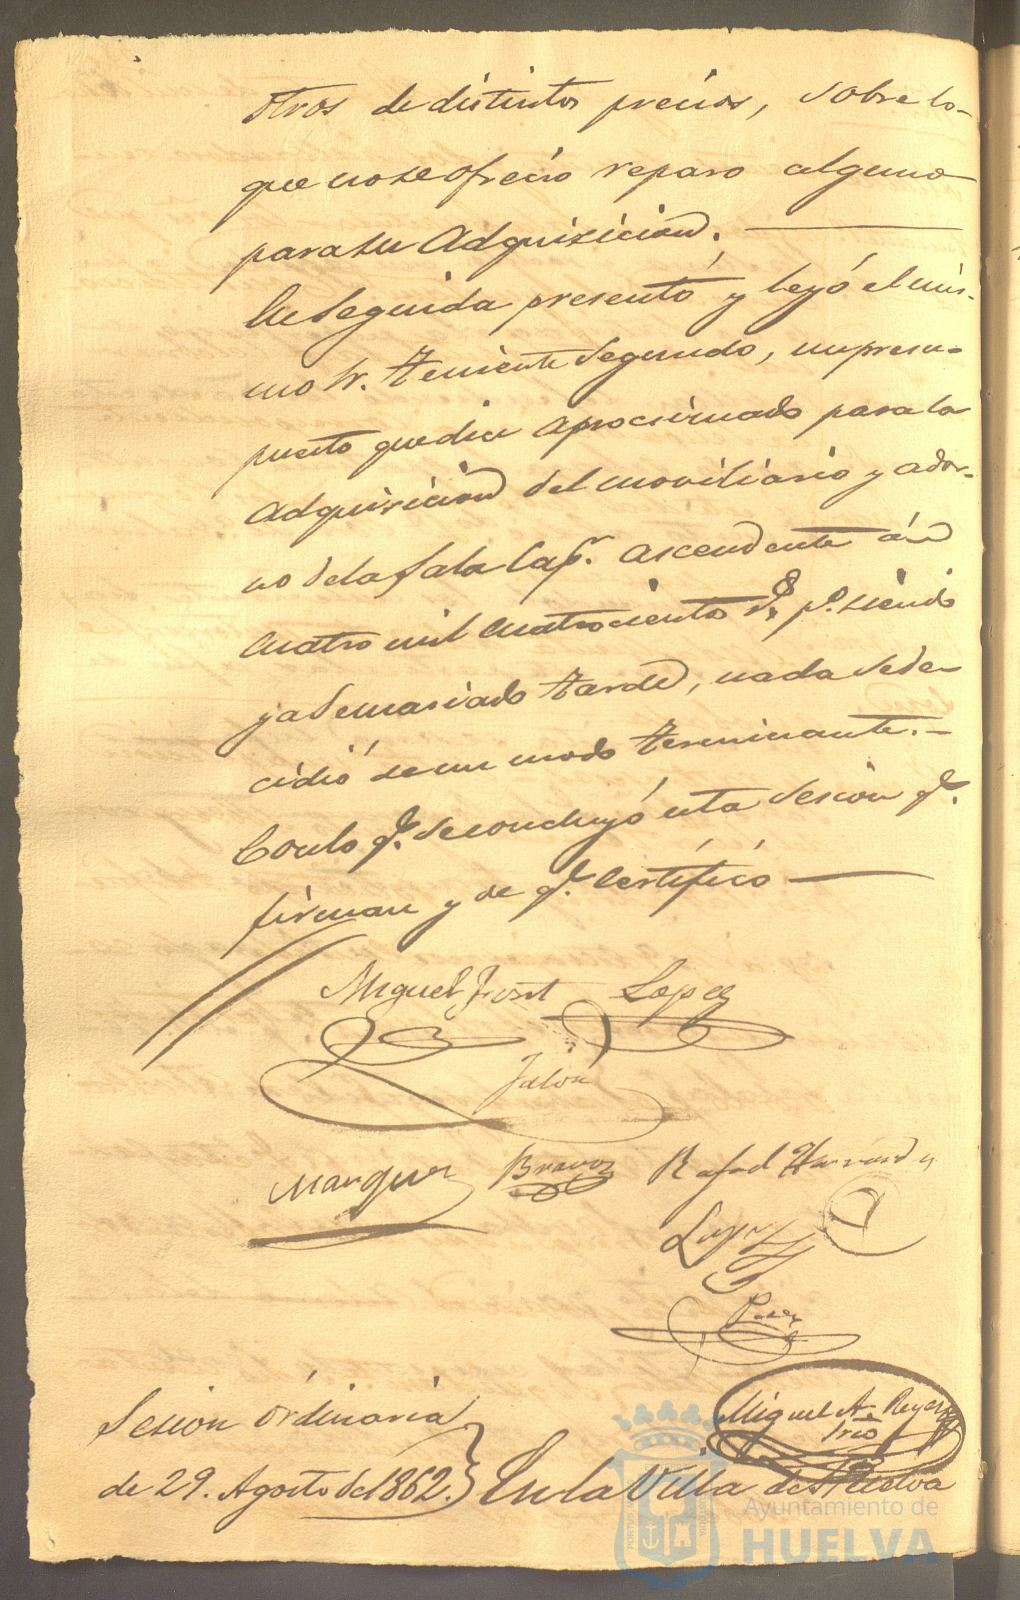 otros de distintos precios, sobre lo-
que no se ofrecio reparo alguno
para su Adquisicion.
En Seguida presentó y leyó el mis-
mo Sr. Teniente Segundo, un presu-
puesto que dice aprocsimado para la
Adquisicion del moviliario y ador-
no de la Sala Cap.r ascendente á
cuatro mil cuatrocientos r.s p.o siendo
ya demasiado tarde, nada se de-
cidió de un modo terminante.-
Con lo q.e se concluyó esta sesion q.e
firman y de q.e Certifico
Miguel Lopez
Jalon
Marquez Bravo Rafael Hernandez
Lopez
Perez
Miguel A. Reyes
Srio
Sesion Ordinaria
de 29. Agosto de 1862. En la Villa de Huelva
Ayuntamiento de
HUELVA